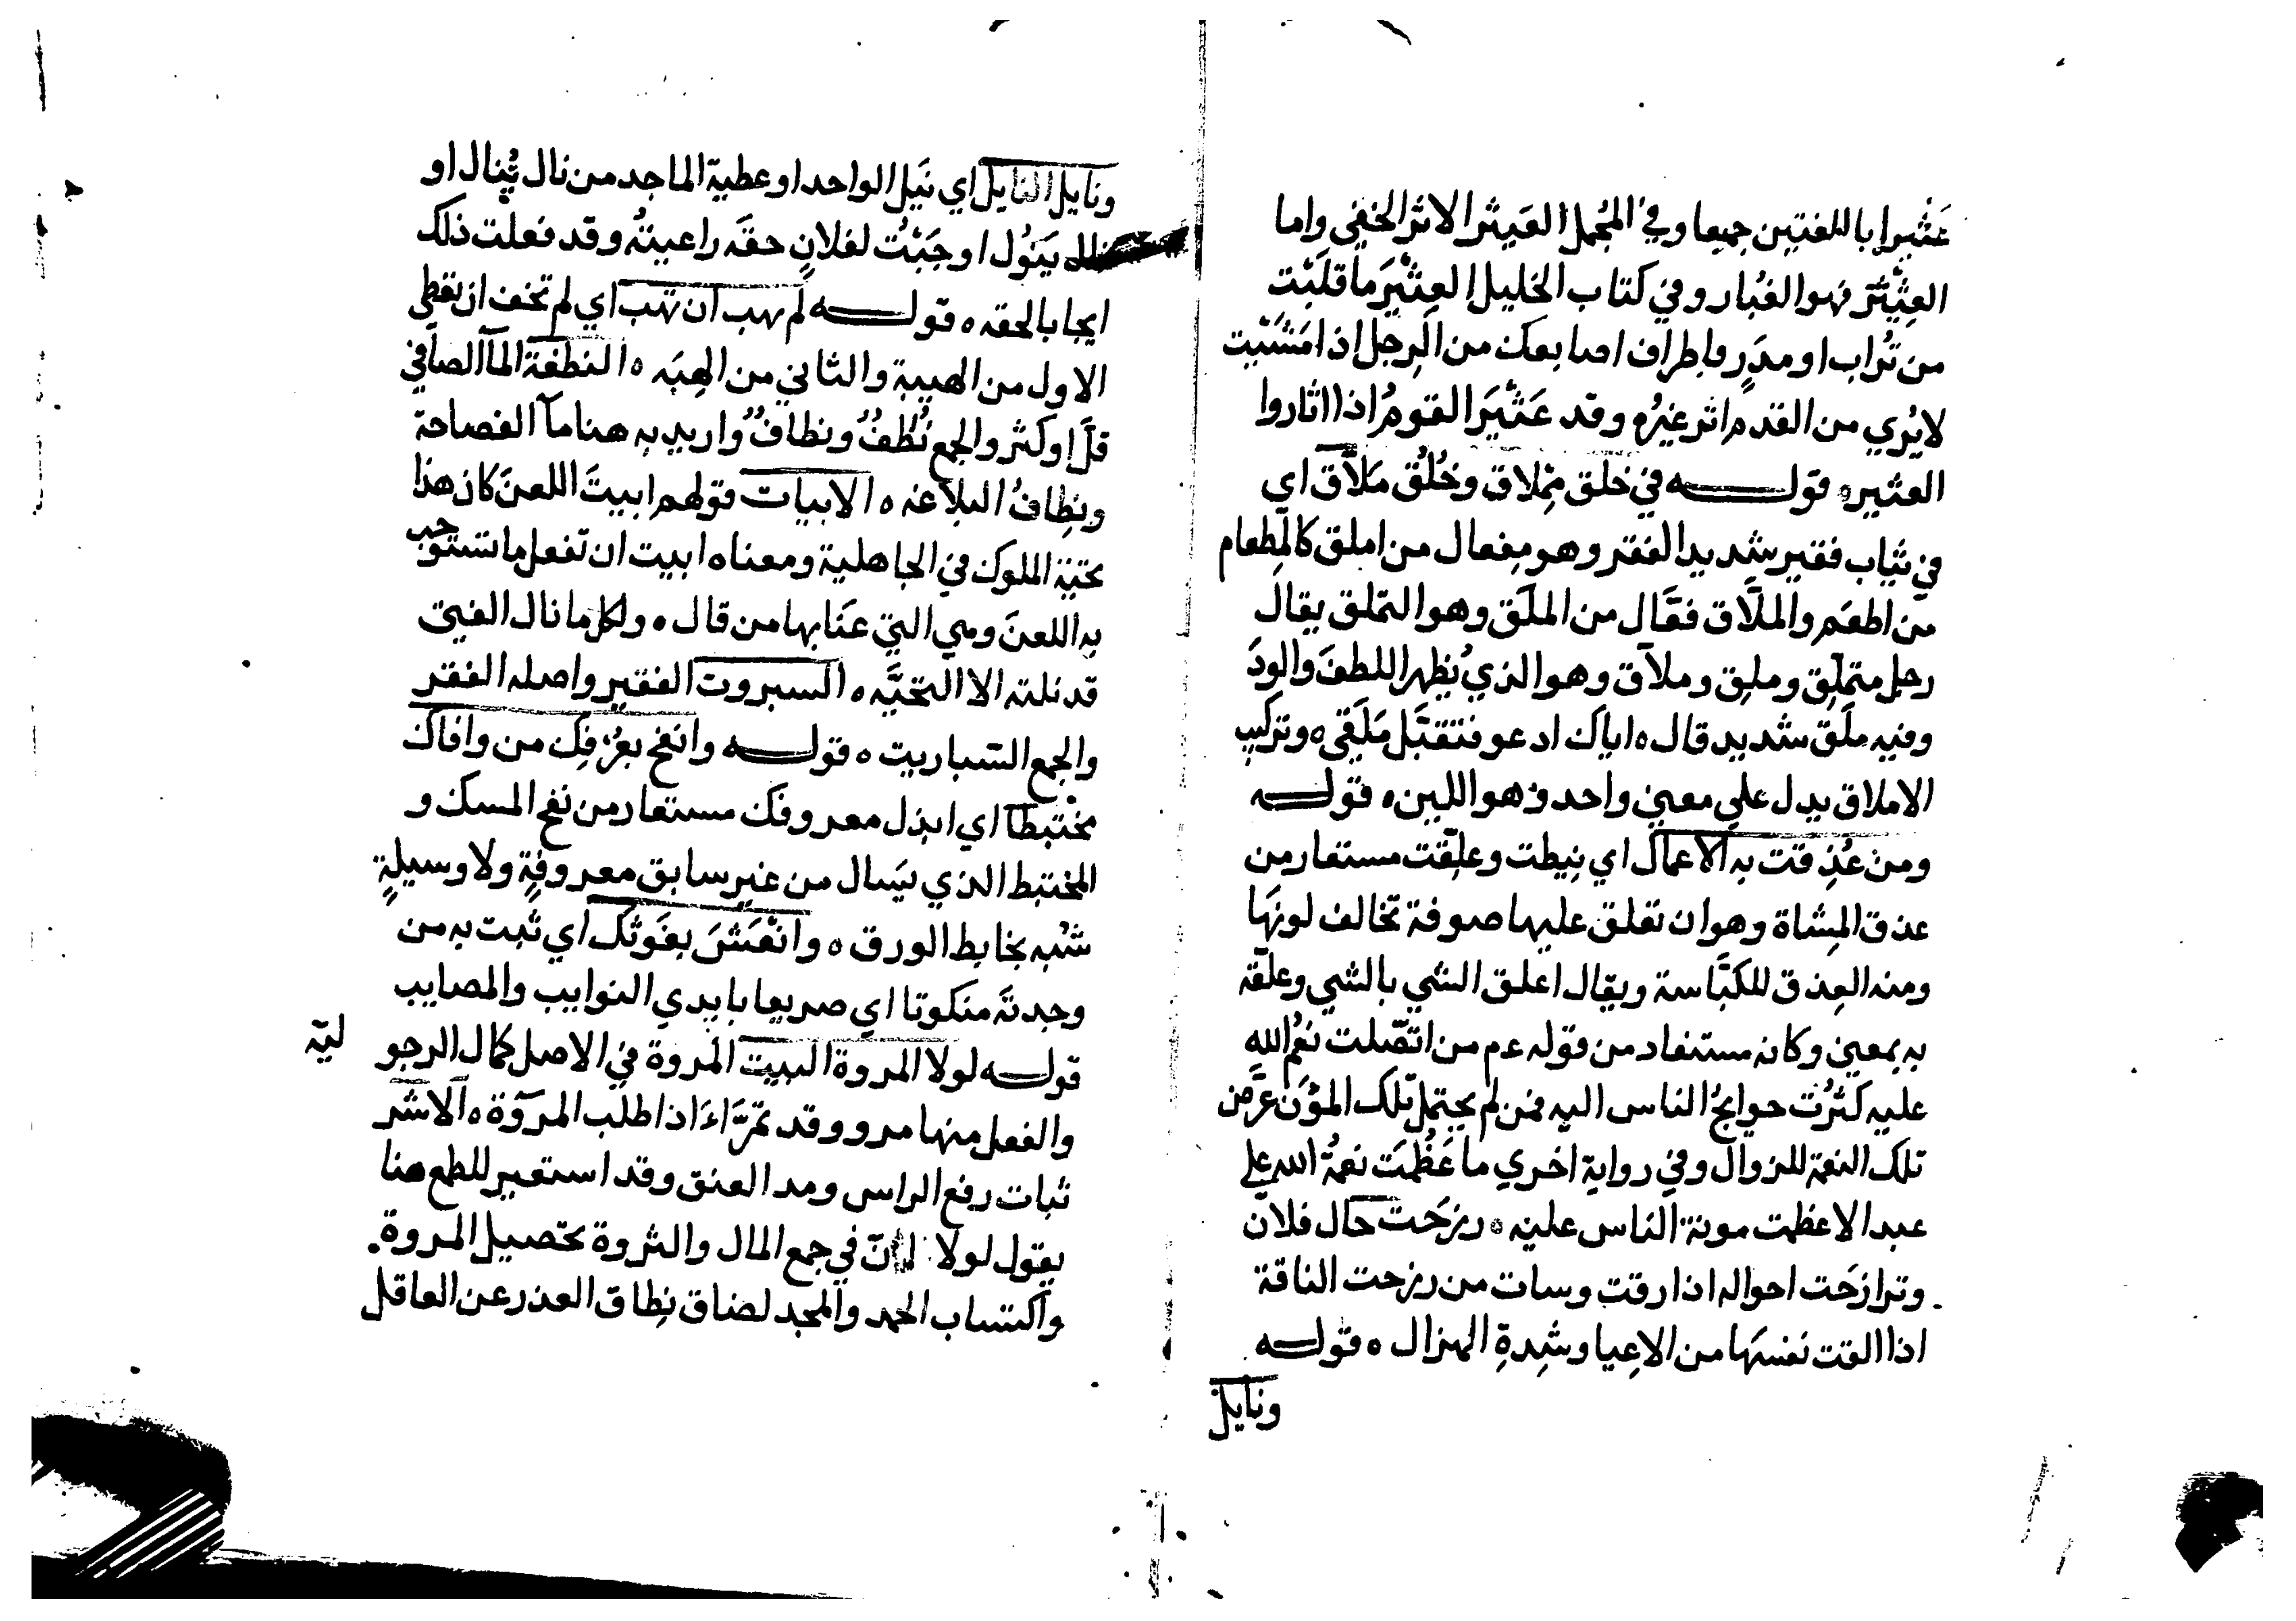 عَثْيَرا باللغتين جميعا وفي المُجمل العَيثر الاثر الخفي واما
العِثْيَر فهو الغُبار وفي كتاب الخليل العِثْيَر ما قلَبْت
من تُراب او مدَرٍ باطراف اصابعك من الرِجل اذا مَشَيْت
لا يُري من القدم اثر غيرُه وقد عَثْيَرَ القومُ اذا اثاروا
العثير ه قولــه في خَلَق مِمْلاق وخُلُق مَلَّاق اي
في ثياب فقير شديد الفقر وهو مِفعال من املق كالمِطعام
من اطعَم والملَّاق فعَّال من الملَق وهو التملق يقال
رجل متملِّق وملِق وملَّاق وهو الذي يُظهر اللطفَ والودَ
وفيه ملَق شديد قال ه اياك ادعو فتقبَّل مَلَقي ه وتركيب
الاملاق يدل علي معني واحد وهو اللين ه قولــه
ومن عُذِقت به الاعمال اي نِيطت وعلِّقت مستعار من
عذق المِشاة وهو ان تعلق عليها صوفة تخالف لونَها
ومنه العِذق للكبَاسة ويقال اعلق الشي بالشي وعلّقه
به بمعني وكانه مستفاد من قوله عم من اتصّلت نِعُم اللهِ
عليه كثُرت حوايجُ الناس اليه فمن لم يحتمل تلك المُؤن عرَّض
تلك النعمة للزوال وفي رواية اخري ما عَظُمَت نعمةُ الله علي
عبد الا عظمت مونة الناس عليه ه رزحَت حال فلان
وترازحَت احواله اذا رقت وسات من رزحت الناقة
اذا القت نفسَها من الاعِيا وشِدةِ الهزال ه قولــه
ونايل
ونايل النايل اي نَيل الواحد او عطية الماجد من نال يُنال او
نال يَنوُل اوجَبْتُ لفلانٍ حقَه راعيتُه وقد فعلت ذلك
ايجابا لحقه ه قولــه لم يهب ان تهب اي لم تخف ان تعطي
الاول من الهيبة والثاني من الهِبَه ه النطفة المآ الصافي
قلَّ او كثر والجمع نُطَفٌ ونطافٌ واريد به هنا مآ الفصاحة
ونِطافُ البلاغه ه الابيات قولهم ابيتَ اللعن كان هذا
تحيّة الملوك في الجاهلية ومعناه ابيت ان تفعل ما تستوجب
به اللعنَ وهي التي عنَا بها من قال ه ولكل ما نال الفتي
قد نلته الا التحيَّه ه السبروت الفقير واصله الفقر
والجمع السَباريت ه قولــه وانفح بعُرْفِك من وافاك
مختبِطا اي ابذل معروفك مستعار من نفح المسك و
المختبط الذي يَسال من غير سابق معروفةٍ ولا وسيلةٍ
شُبه بخابط الورق ه وانْعَش بغَوثك اي ثبت به من
وجدتَه منكوتا اي صريعا بايدي النوايب والمصايب
قولــه لولا المروة البيت المروة في الاصل كمال الرجو ليّه
والفعل منها مرو وقد تمرَّاءَ اذا طلب المروّة ه الاشر
ثبات رفع الراس ومد العنق وقد استعير للطمع هنا
يقول لولا انّ في جمع المال والثروة تحصيل المروة
واكتساب الحمد والمجد لضاق نِطاق العذر عن العاقل